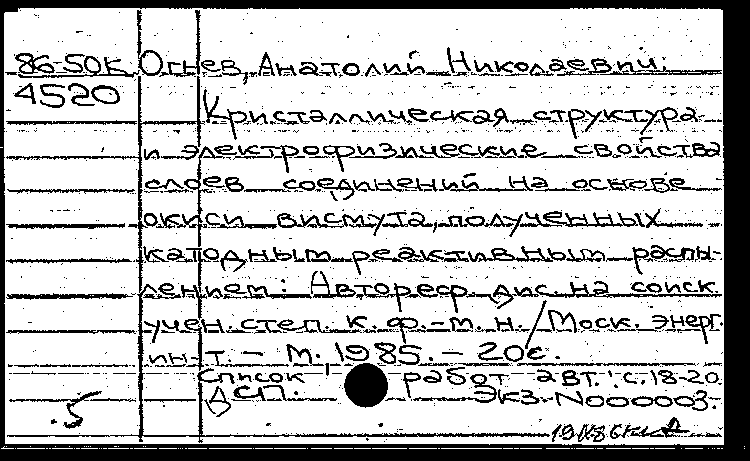 86-50к Огнев, Анатолий Николаевич.
4520
Кристаллическая структура
и электрофизические свойства
слоев соединений на основе
окиси висмута, полученных
катодным реактивным распы-
лением: Автореф. дис. на соиск.
учен. степ. к. ф.-м. н. / Моск. энерг.
ин-т. - М. 1985. - 20с.
Список работ авт.: с. 18-20.
ДСП. Экз. N000003.
.5